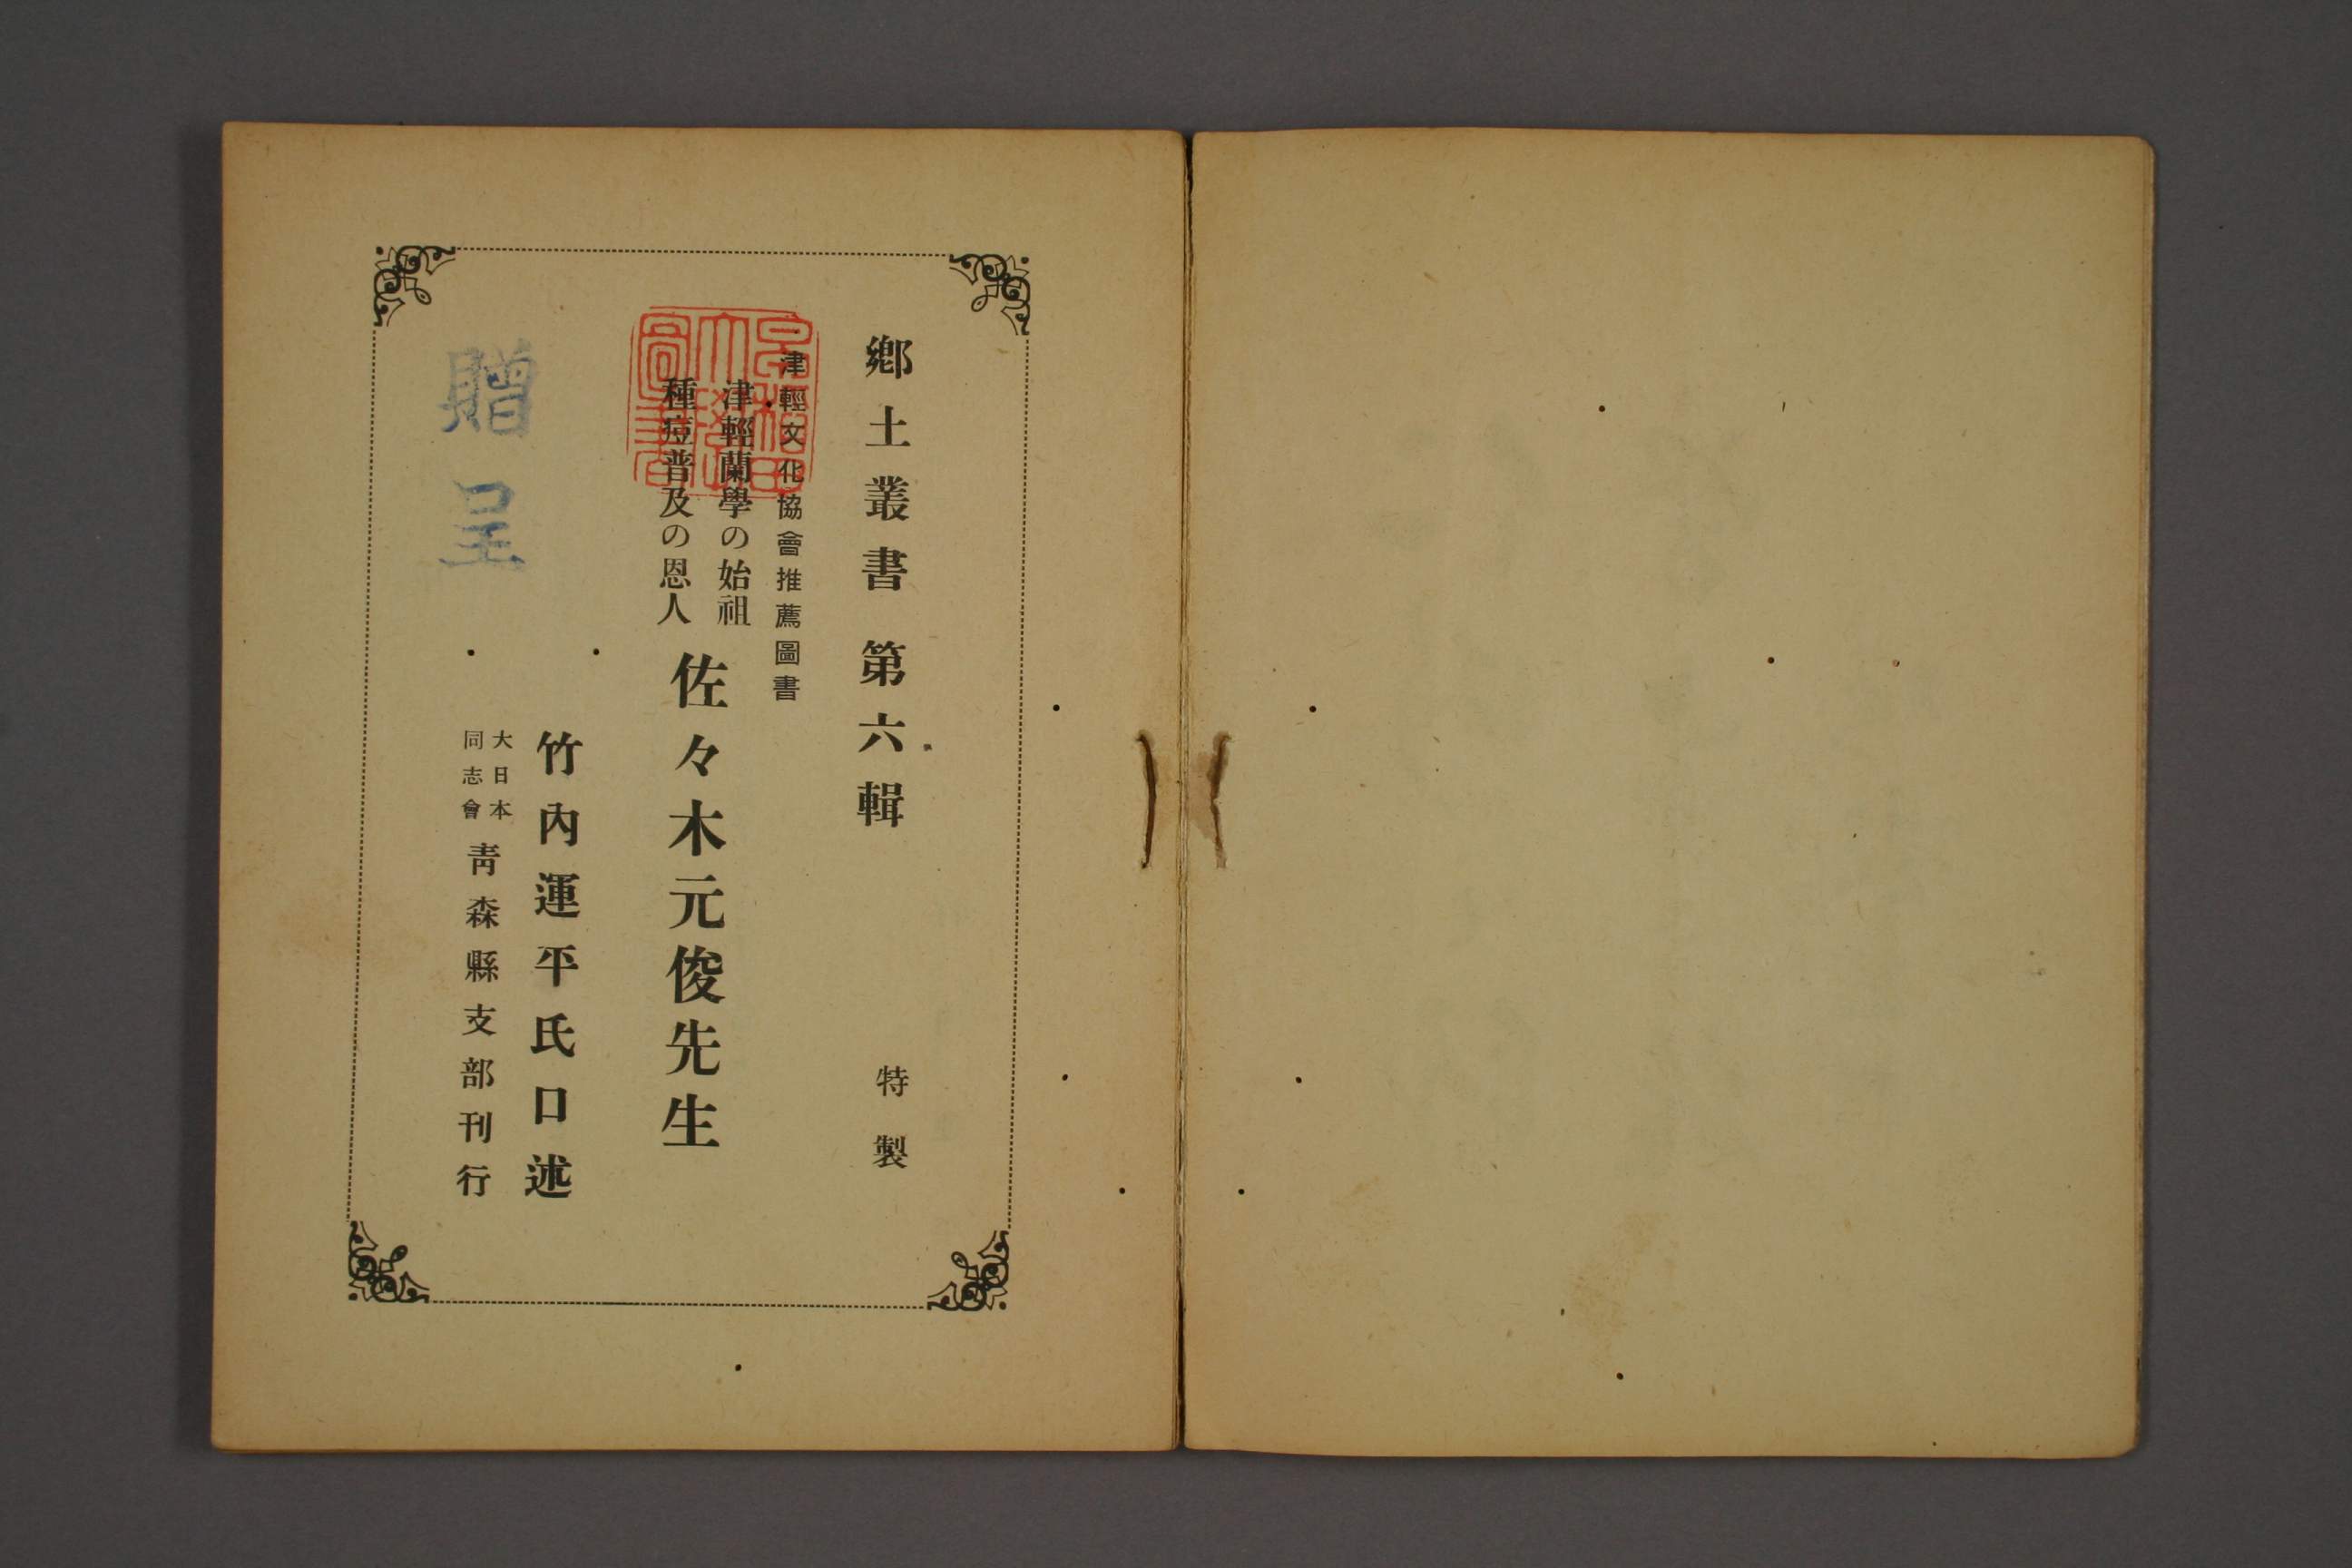 鄕土叢書 第六輯 特製
津輕文化協會推薦圖書
津輕蘭學の始祖
種痘普及の恩人
佐々木元俊先生
竹內運平氏口述
大日本
同志會
靑森縣支部刊行
贈呈
早稻田
大學
圖書